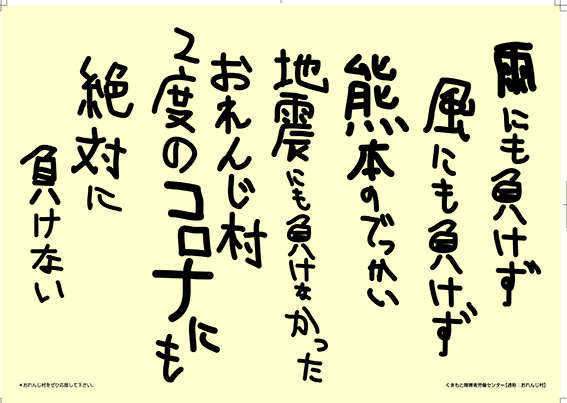 雨にも負けず
風にも負けず
熊本のでっかい
地震にも負けなかった
おれんじ村
2度のコロナにも
絶対に
負けない
＊おれんじ村をぜひ応援して下さい。
くまもと障害者労働センター【通称：おれんじ村】